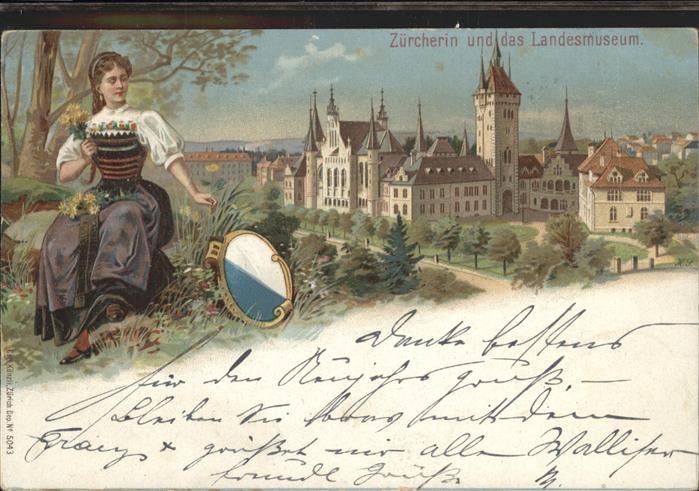 Zürcherin und das Landesmuseum.
Danke bestens
für den Neujahrs gruß, –
bleiben Sie brav mit dem
Franz & grüßet mir alle Walliser
freundl Grüße
Künzli, Zürich Dep. Nº 5043